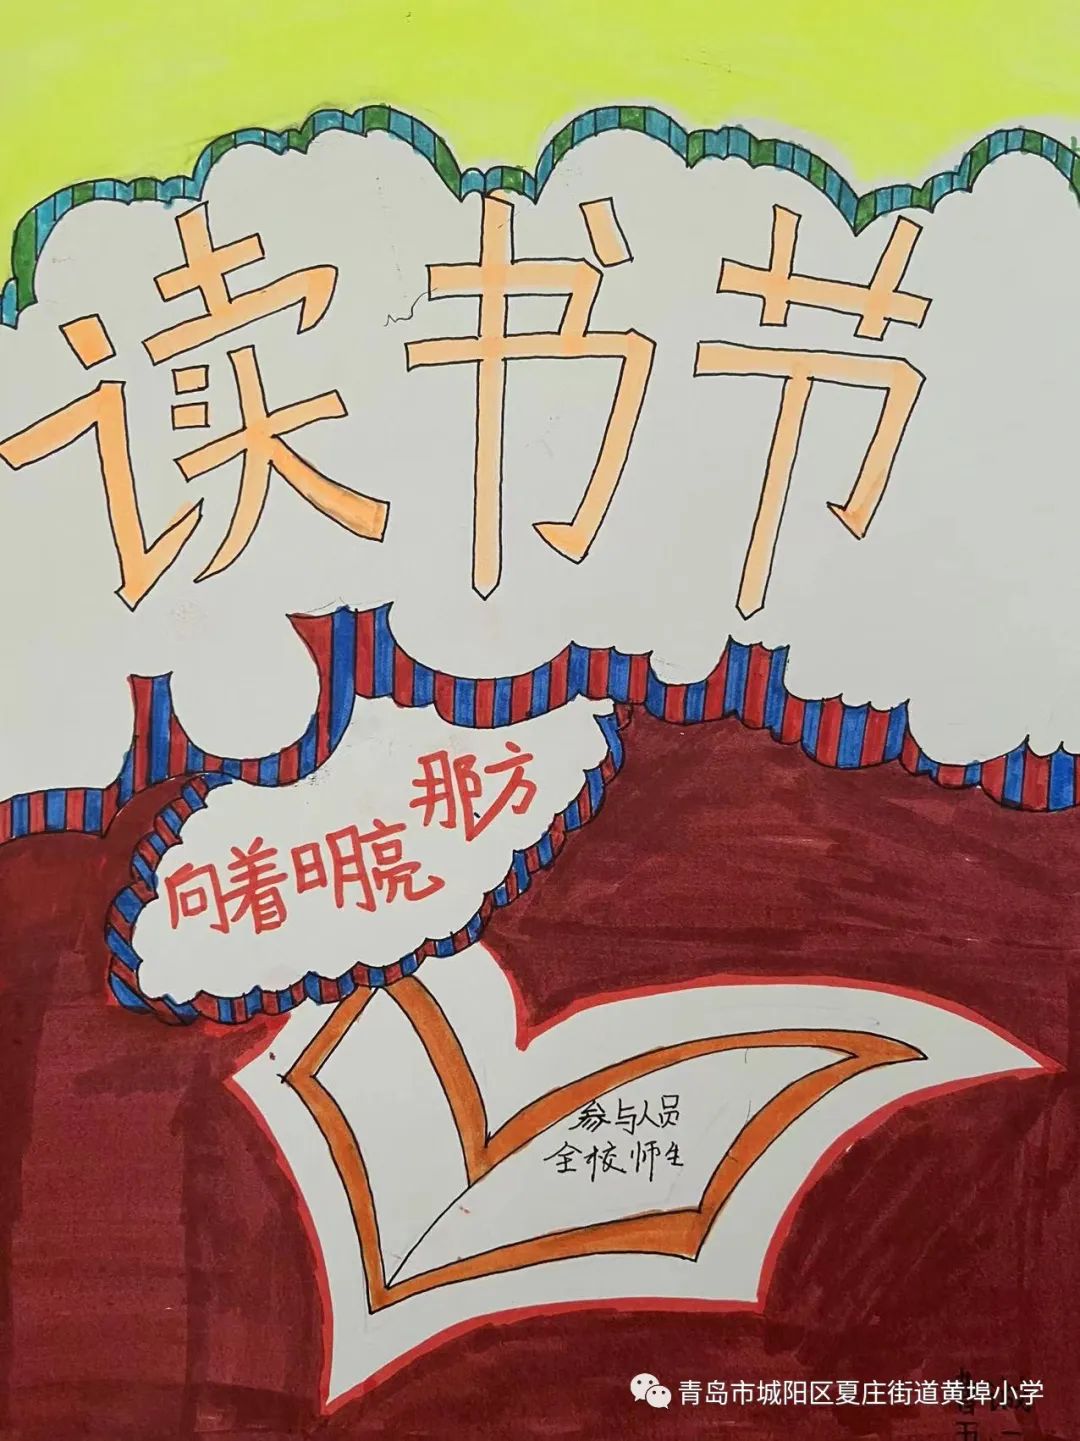 读书节
向着明亮那方
参与人员
全校师生
青岛市城阳区夏庄街道黄埠小学